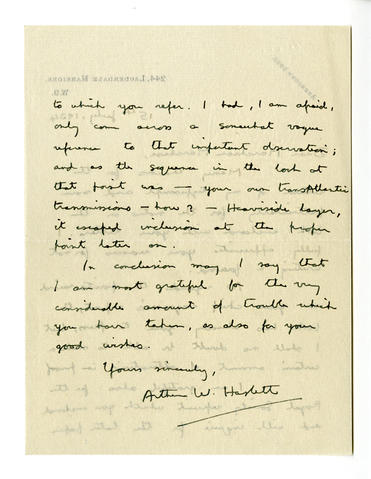 to which you refer. I had, I am afraid,
only come across a somewhat vague
reference to that important observation;
and as the sequence in the book at
that point was — your own transAtlantic
transmissions — how? — Heaviside layer,
it escaped inclusion at the proper
point later on.
In conclusion may I say that
I am most grateful for the very
considerable amount of trouble which
you have taken, as also for your
good wishes.
Yours sincerely,
Arthur W. Haslett